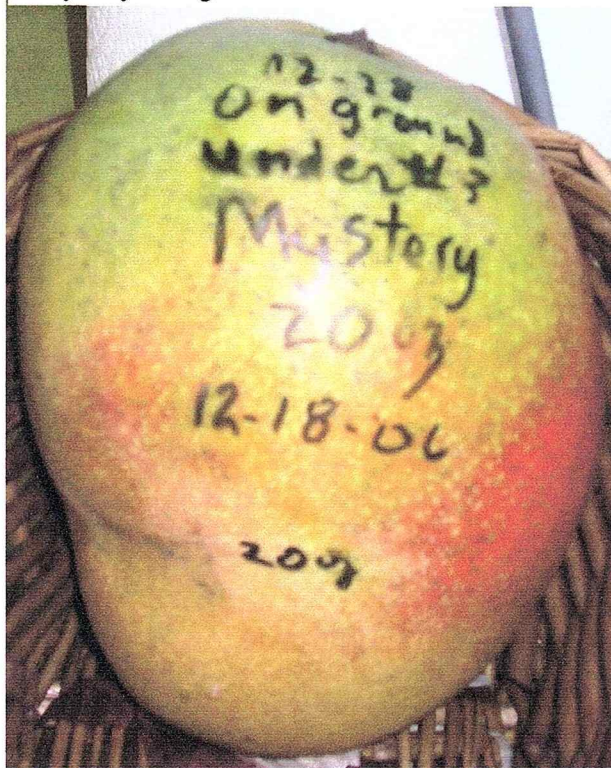 12-18
On ground
under #3
Mystery
2003
12-18-06
2003